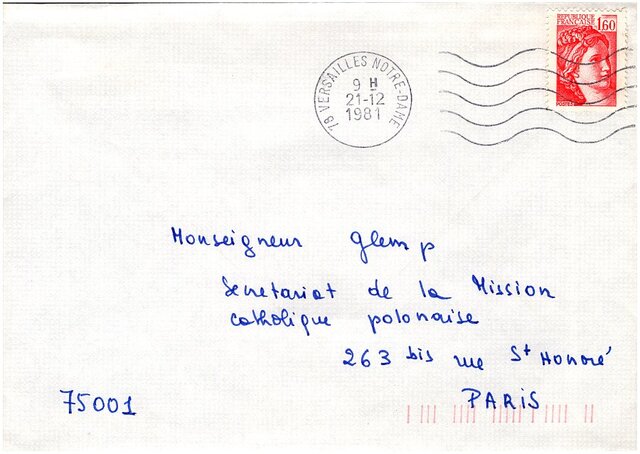 REPUBLIQUE
FRANÇAISE 1,60
POSTES
78 VERSAILLES NOTRE-DAME
9 H
21-12
1981
Monseigneur Glemp
Secretariat de la Mission
catholique polonaise
263 bis rue St Honoré
75001 PARIS